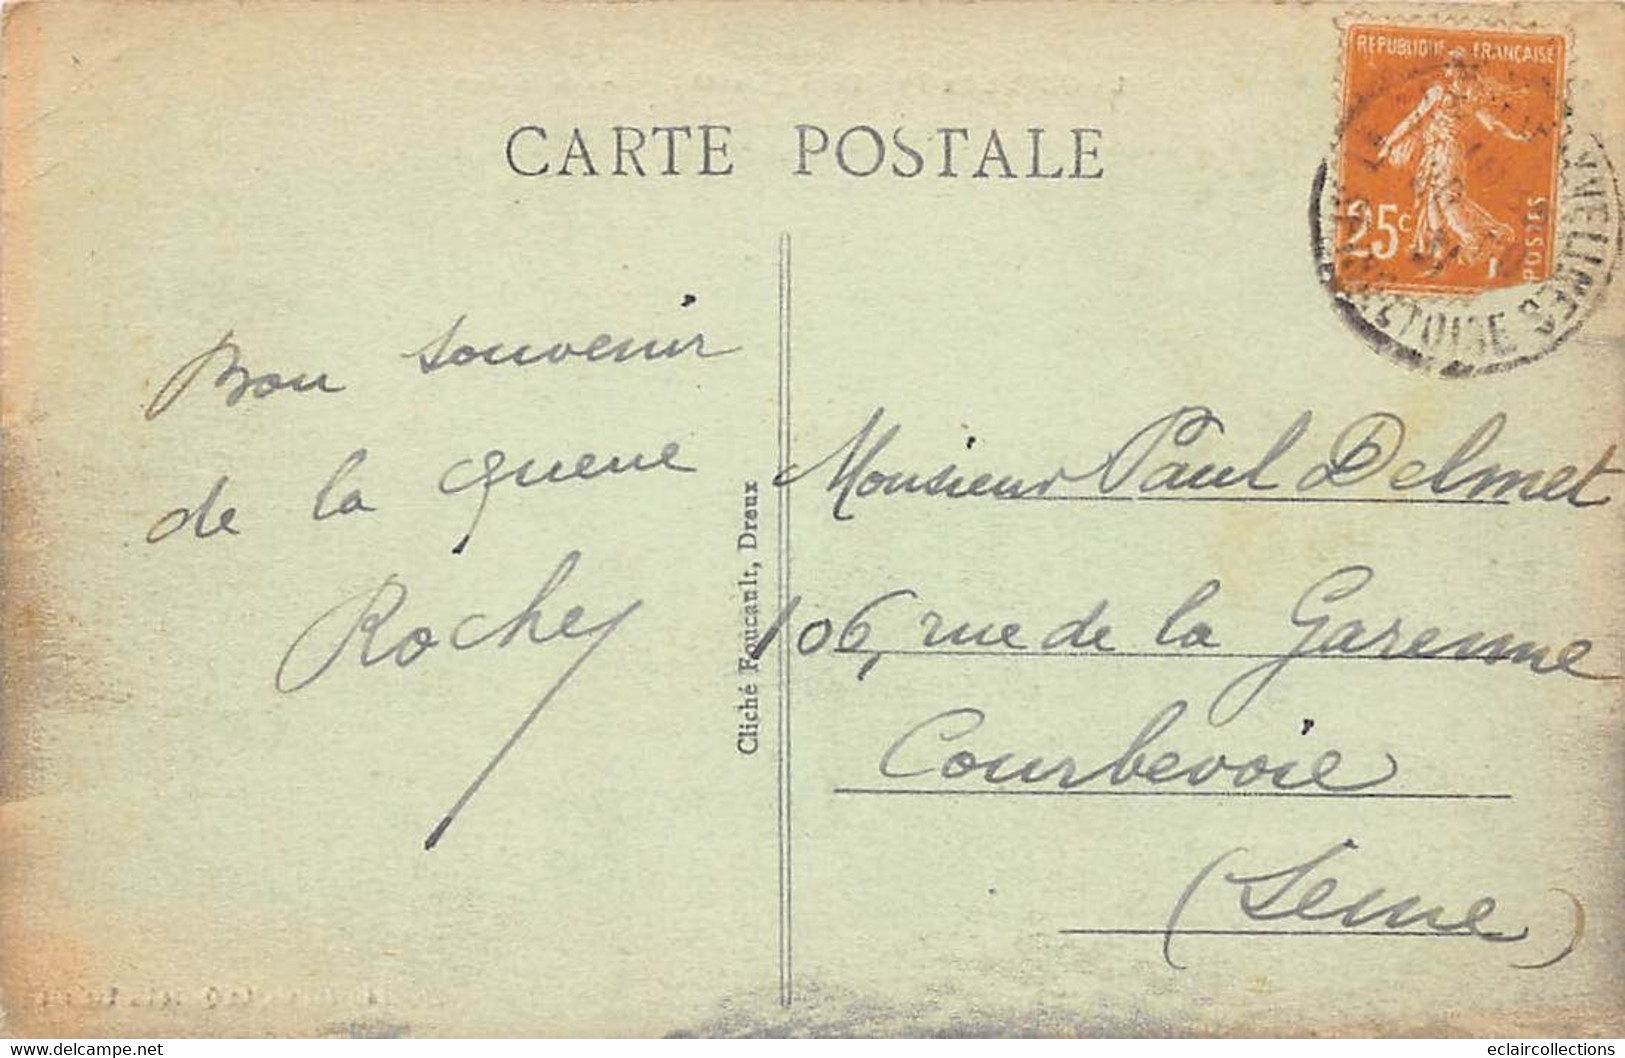 CARTE POSTALE
REPUBLIQUE FRANÇAISE
25c
POSTES
YVELINES
Bon souvenir
de la queue
Roche
Cliché Foucault, Dreux
Monsieur Paul Delmet
106, rue de la Garenne
Courbevoie
(Seine)
https://www.delcampe.net
eclaircollections